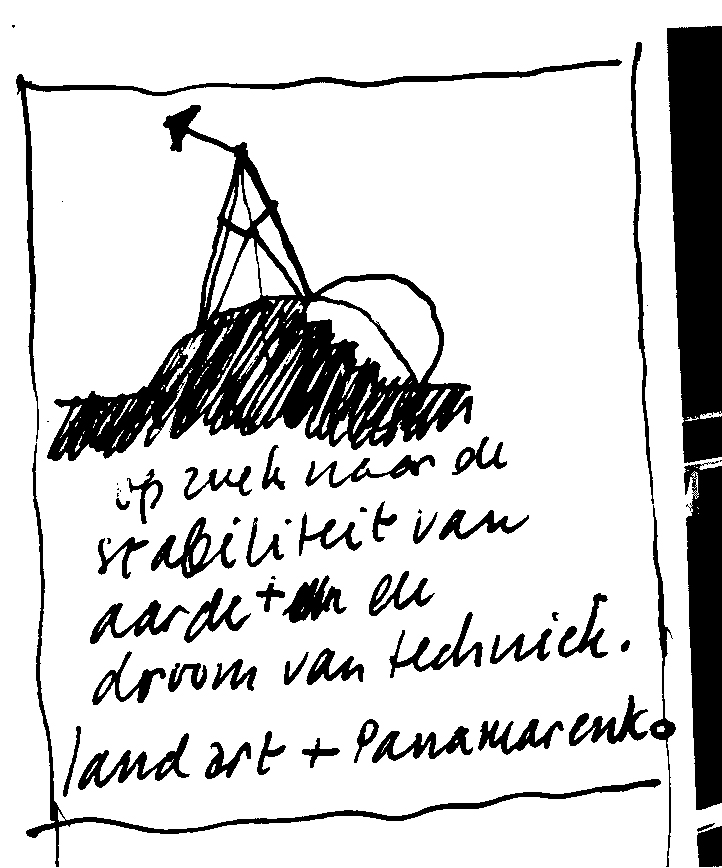 op zoek naar de
stabiliteit van
aarde + de
droom van techniek.
land art + Panamarenko